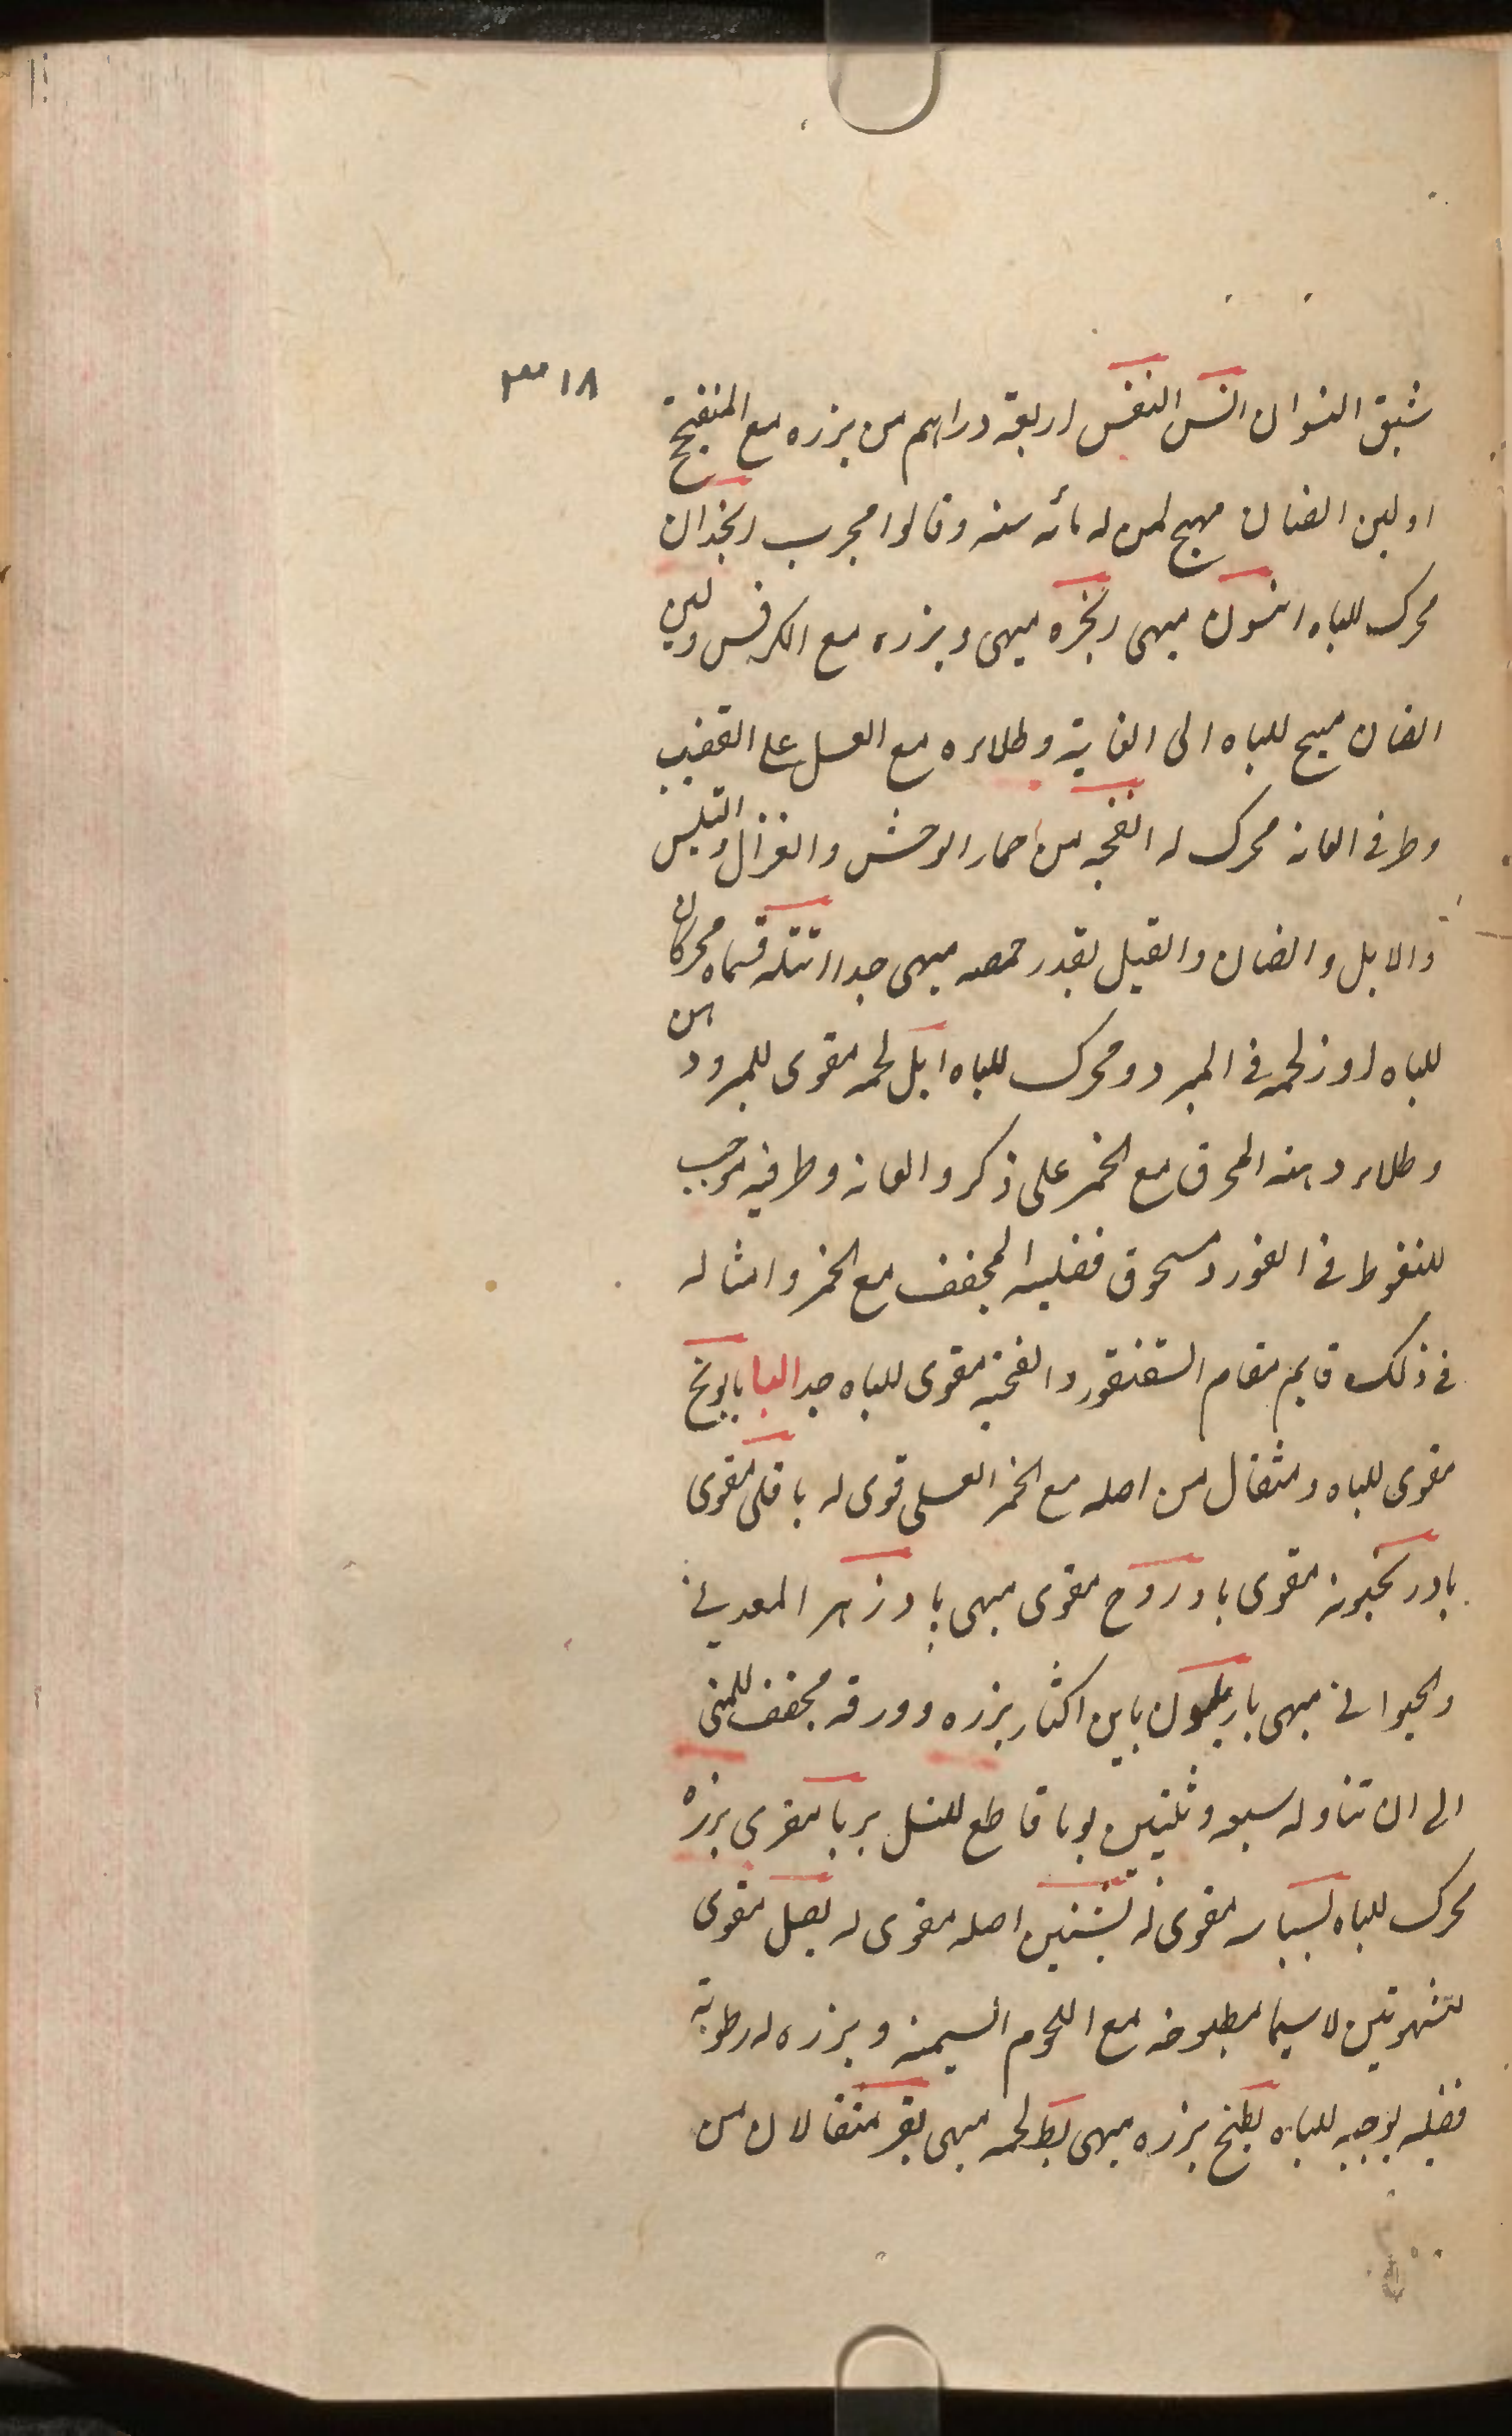 ٣١٨
شبق النسوان النفس اربعة دراهم من بزره مع المنفيج
او لبن الضان مهيج لمن له مائه سنه وقالوا مجرب انجدان
محرك للباه انسون مبهى انجره مبهى وبزره مع الكرفس ولبن
الضان مهيج للباه الى الغاية وطلاءه مع العسل على القضيب
وطرفى العانه محرك له انفحه من حمار الوحش والغزال والتيس
والابل والضان والفيل بقدر حمصه مبهى جدا قسماه محركان
للباه اوز لحمه فى المبرد ومحرك للباه ايل لحمه مقوى للمبرودين
وطلاء دهنه المحرق مع الخمر على ذكر والعانه وطرفيه موجب
للنغوظ فى الفور ومسحوق قضيبه المجفف مع الخمر وامثاله
فى ذلك قايم مقام السقنقور وانفحته مقوى للباه جدا البا بابونج
مقوى للباه ومثقال من اصله مع الخمر العسلى قوى له باقلى مقوى
بادرنجبويه مقوى بادروج مقوى مبهى بادزهر المعدنى
والحيوانى مبهى اكثار بزره وورقه مجفف للمنى
الى ان تناوله سبعه وثلثين يوما قاطع للنسل مقوى بزره
محرك للباه بسباسه مقوى له اصله مقوى له بصل مقوى
للشهوتين لاسيما مطبوخه مع اللحوم السمينه وبزره له رطوبة
فضليه بوجبه للباه بطيخ بزره مبهى بط لحمه مبهى بقر مثقالان من